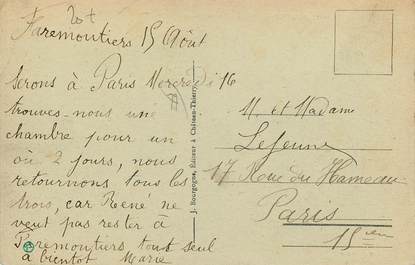 Faremoutiers 15 Août
Serons à Paris Mercredi 16
trouves-nous une
chambre pour un
ou 2 jours, nous
retournons tous les
trois, car René ne
veut pas rester à
Faremoutiers tout seul
à bientôt Marie
J. Bourgogne, Editeur à Château-Thierry
M. et Madame
Lejeune
17 Rue du Hameau
Paris
15 em